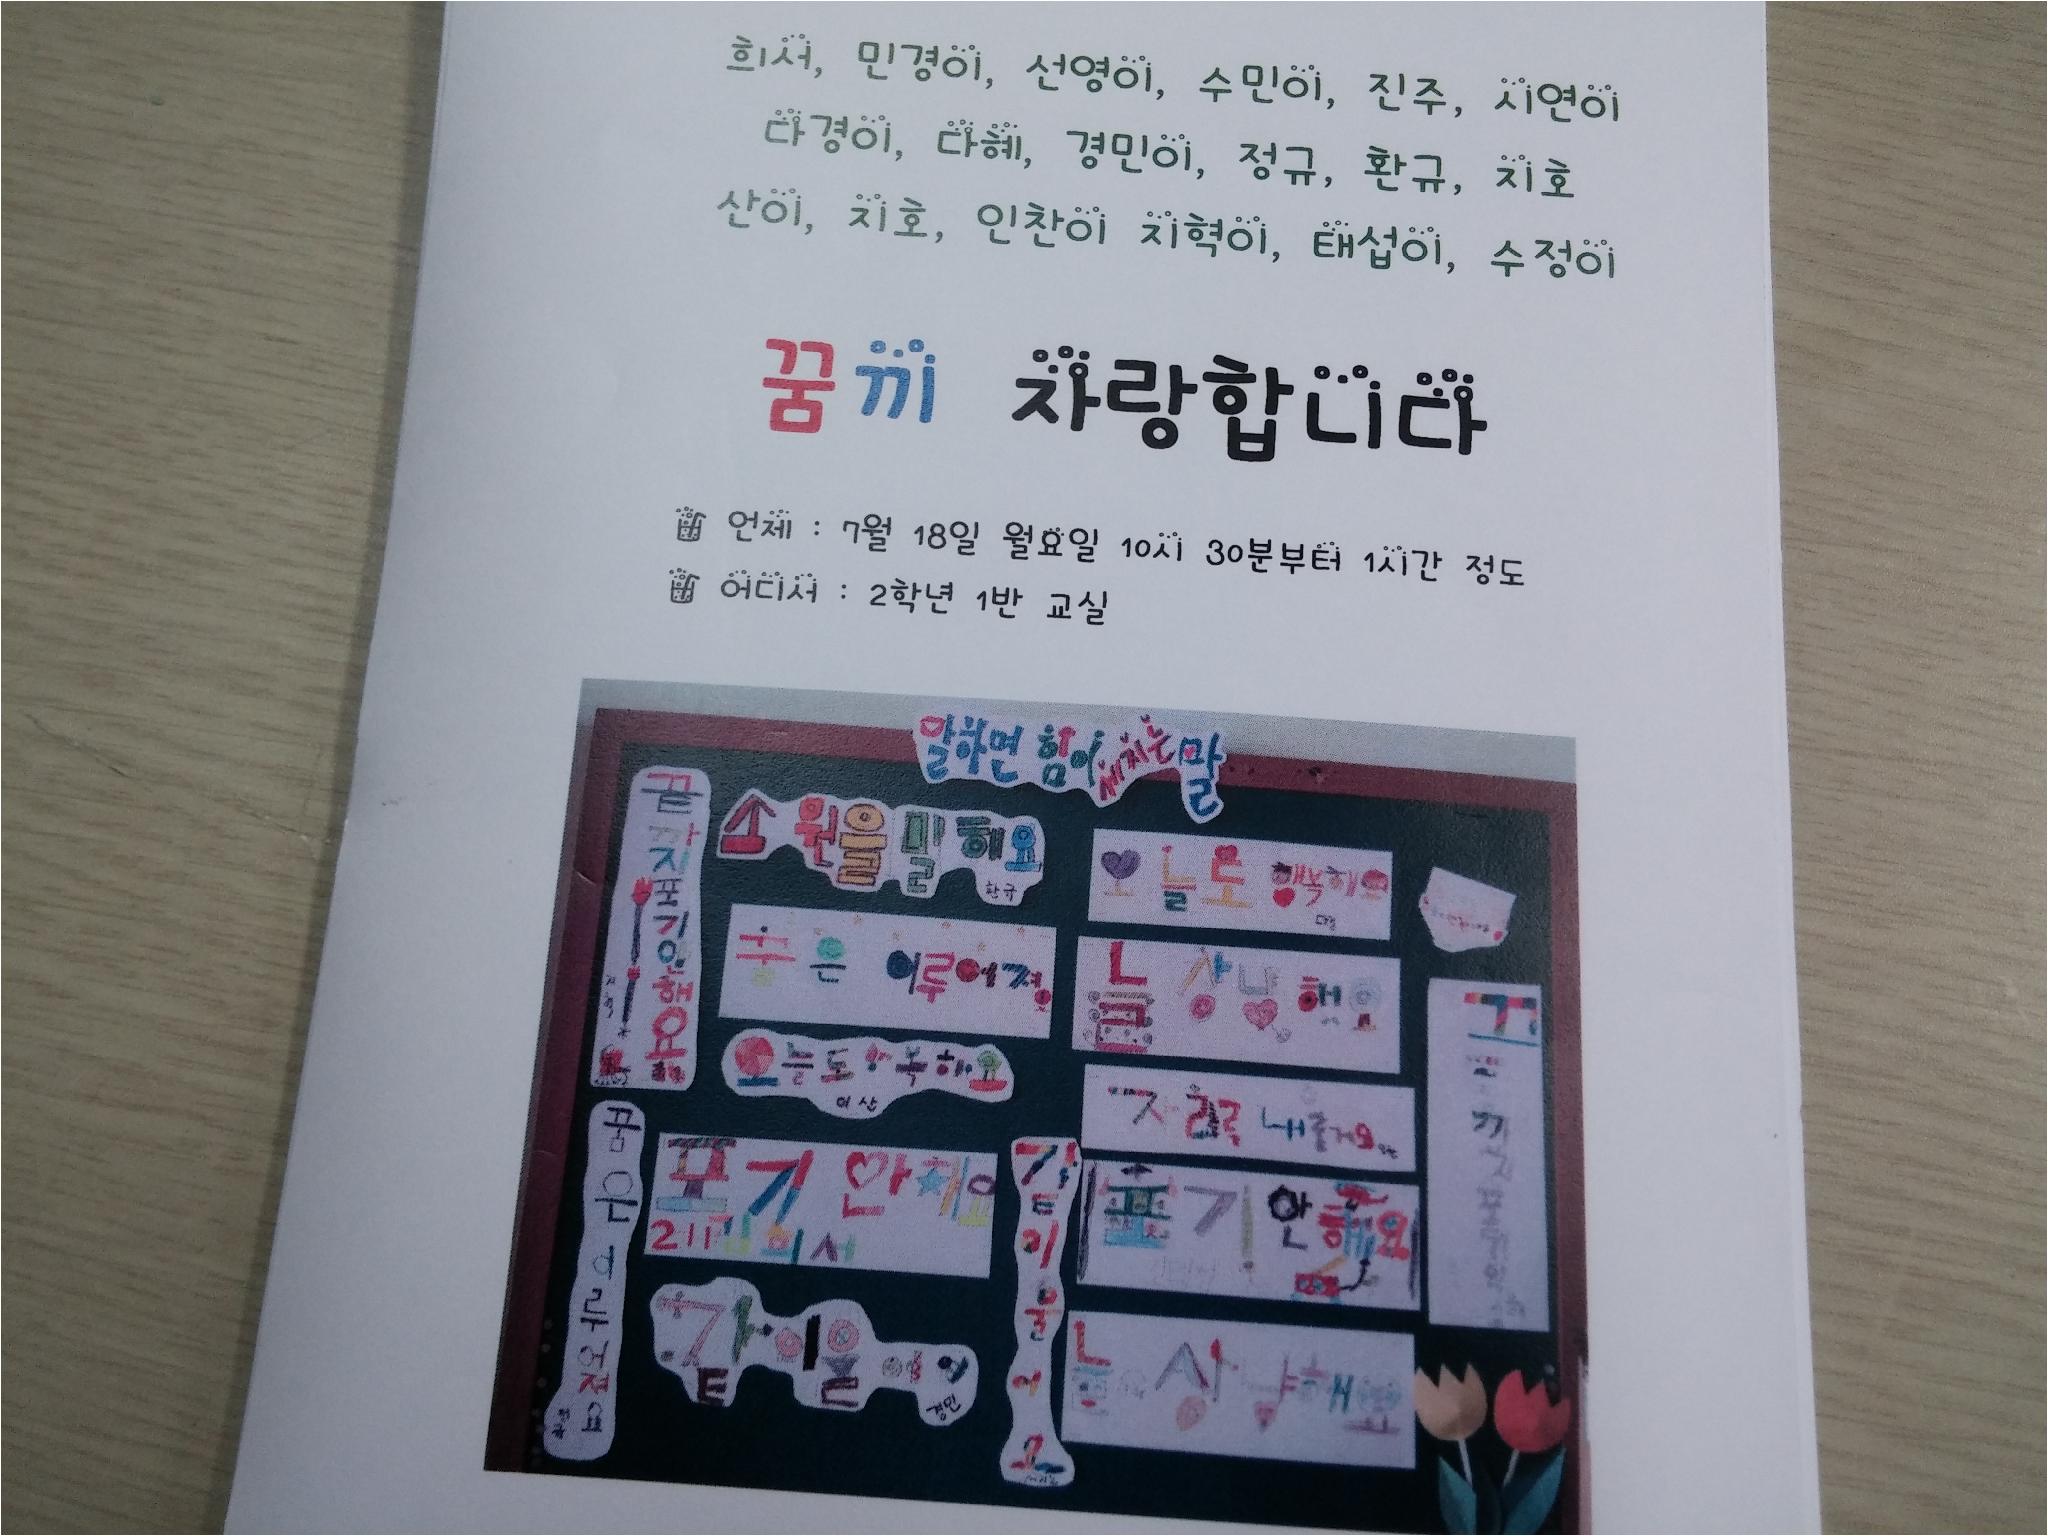 희서, 민경이, 선영이, 수민이, 진주, 시연이
다경이, 다혜, 경민이, 정규, 환규, 지호
산이, 지호, 인찬이 지혁이, 태섭이, 수정이
꿈끼 자랑합니다
언제 : 7월 18일 월요일 10시 30분부터 1시간 정도
어디서 : 2학년 1반 교실
말하면 힘이 세지는 말
소원을 말해요
환규
오늘도 행복해요
꿈은 이루어져
늘 상냥해요
오늘도 행복해요
이산
포기 안해요
211 김희서
포기 안해요
경민
늘 상냥해요
꿈은 이루